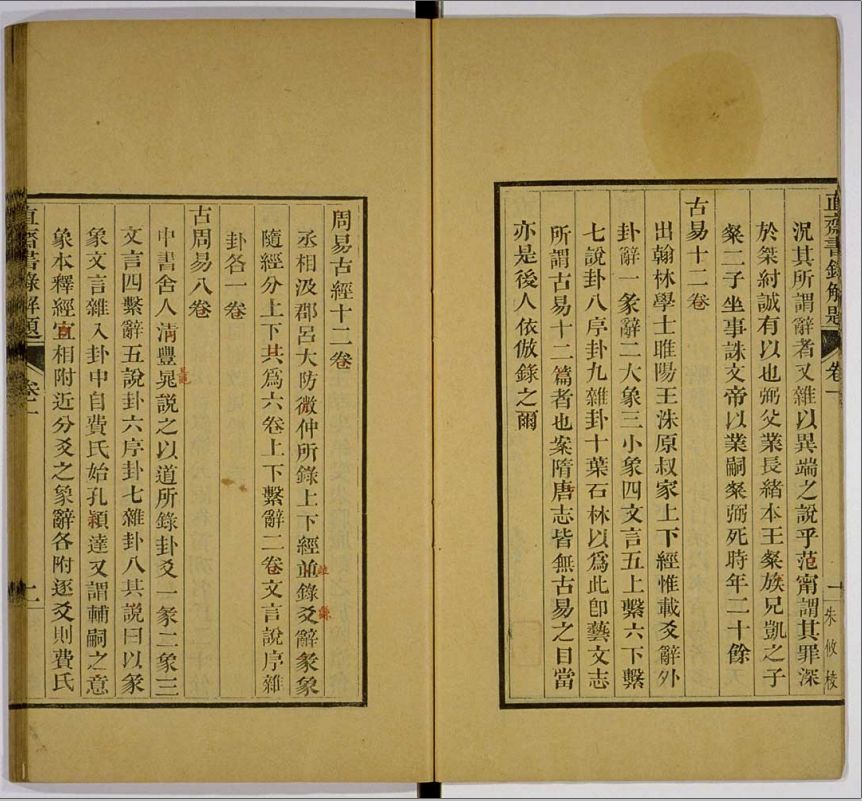 直齋書錄解題 卷一 一 朱攸校
況其所謂辭者又雜以異端之說乎范甯謂其罪深
於桀紂誠有以也弼父業長緒本王粲族兄凱之子
粲二子坐事誅文帝以業嗣粲弼死時年二十餘
古易十二卷
出翰林學士睢陽王洙原叔家上下經惟載爻辭外
卦辭一彖辭二大象三小象四文言五上繫六下繫
七說卦八序卦九雜卦十葉石林以為此卽藝文志
所謂古易十二篇者也案隋唐志皆無古易之目當
亦是後人依倣錄之爾
周易古經十二卷
丞相汲郡呂大防微仲所錄上下經並錄爻辭彖象
隨經分上下共為六卷上下繫辭二卷文言說序雜
卦各一卷
古周易八卷
中書舍人清豐晁說之以道所錄卦爻一彖二象三
文言四繫辭五說卦六序卦七雜卦八其說曰以彖
象文言雜入卦中自費氏始孔穎達又謂輔嗣之意
象本釋經宜相附近分爻之象辭各附逐爻則費氏
直齋書錄解題